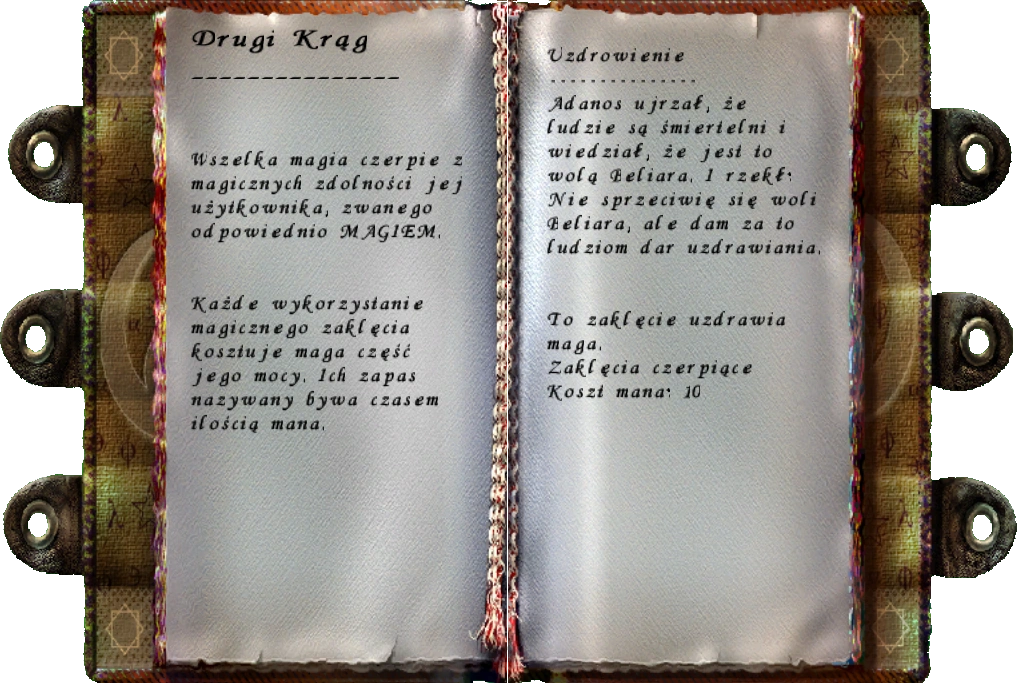 Drugi Krąg
---------------
Wszelka magia czerpie z
magicznych zdolności jej
użytkownika, zwanego
odpowiednio MAGIEM.
Każde wykorzystanie
magicznego zaklęcia
kosztuje maga część
jego mocy. Ich zapas
nazywany bywa czasem
ilością mana.
Uzdrowienie
---------------
Adanos ujrzał, że
ludzie są śmiertelni i
wiedział, że jest to
wolą Beliara. I rzekł:
Nie sprzeciwię się woli
Beliara, ale dam za to
ludziom dar uzdrawiania.
To zaklęcie uzdrawia
maga.
Zaklęcia czerpiące
Koszt mana: 10